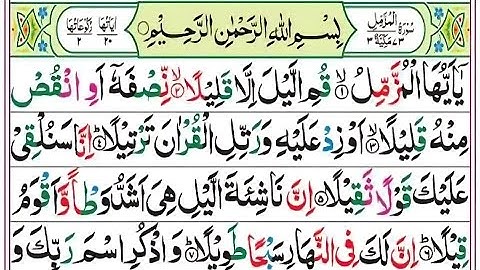 سُورَةُ الْمُزَّمِّلِ ٧٣ مَكِّيَّةٌ ٣
بِسْمِ اللهِ الرَّحْمٰنِ الرَّحِيْمِ
اٰيَاتُهَا ٢٠ رُكُوْعَاتُهَا ٢
يٰۤاَيُّهَا الْمُزَّمِّلُ ۙ﴿۱﴾ قُمِ الَّيْلَ اِلَّا قَلِيْلًا ۙ﴿۲﴾ نِّصْفَهٗۤ اَوِ انْقُصْ
مِنْهُ قَلِيْلًا ۙ﴿۳﴾ اَوْ زِدْ عَلَيْهِ وَ رَتِّلِ الْقُرْاٰنَ تَرْتِيْلًا ؕ﴿۴﴾ اِنَّا سَنُلْقِيْ
عَلَيْكَ قَوْلًا ثَقِيْلًا ﴿۵﴾ اِنَّ نَاشِئَةَ الَّيْلِ هِيَ اَشَدُّ وَطْاً وَّ اَقْوَمُ
قِيْلًا ؕ﴿۶﴾ اِنَّ لَكَ فِي النَّهَارِ سَبْحًا طَوِيْلًا ؕ﴿۷﴾ وَ اذْكُرِ اسْمَ رَبِّكَ وَ